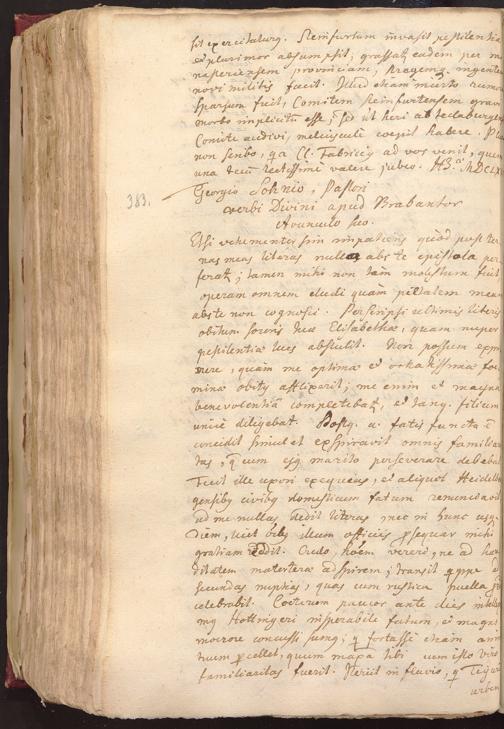 sit exercitaturq. Reinfurtum invasit pestilentia
et plurimos absumpsit; grassatr eadem per
provinciam, Pragenis ingente
novi militis facit. Illud etiam
sparsum fuit, Comitem Reinfurtensem gravi
morbo implicitu esse, sed ut heri ab Teclaburgen
Comite audivi, meliuscule coepit habere.
non scribo, qa Cl. Fabricius ad vos venit, quem
una tecu rectissime valere jubeo. MDCLX
383.
Georgio Sohnio, Pastori
verbi Divini apud Brabantos
Avunculo suo.
Etsi vehementer sim impatiens quod post ter
nas meas literas nulla abs te epistola per
feratr; tamen mihi non tam molestum fuit
operam omnem eludi quam pietatem mea
abs te non cognosci. Perscripsi ultimis literis
obitum sororis tuæ Elisabethæ, quam nuper
pestilentiæ lues abstulit. Non possum expri
mere, quam me optimæ et ornatissimæ foe
minæ obitus afflixerit; me enim et magna
benevolentia complectebatr, et tanq. filium
unice diligebat. Postq. a. fatis functa e
concidit simul et exspiravit omnis familiari
tas, q cum ejq marito perseverare debebat.
Fecit ille uxori exequias, et aliquot Heidelb
gensibq civibq domesticum fatum renunciavit
ad me nullas dedit literas, nec in hunc usq.
diem, licet bis illum officiis prosequar mihi
gratiam reddit. Credo, hoem vereri, ne ad hæ
ditatem materteræ adspirem; transit qppe ad
secundas nuptias, quas cum rustica puella
celebrabit. Coeterum paucos ante dies intelle
mq Hottingeri insperabile fatum, et magno
moerore concussi sumq; q fortasse etiam ani
tuum percellet, quum magna tibi cum isto viro
familiaritas fuerit. Periit in fluvio, q Tigur
urbem